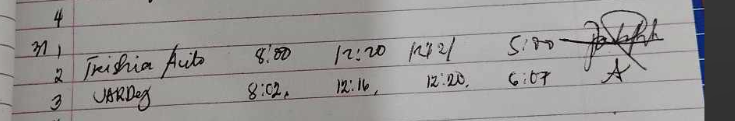 4
31 1
2 Trishia Auto 8:00 12:20 12:21 5:00
3 JARDeg 8:02, 12:16, 12:20, 6:07 A